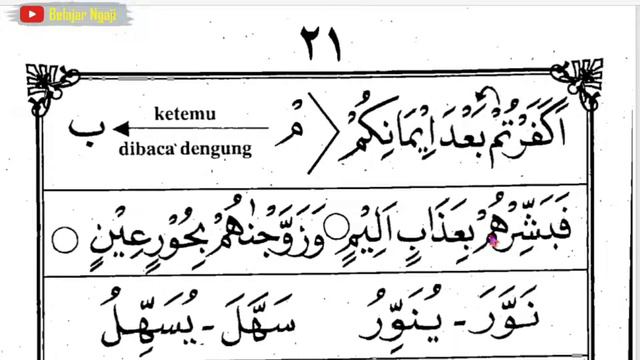 Belajar Ngaji
٢١
اَكَفَرْتُمْ بَعْدَ اِيْمَانِكُمْ مْ ketemu ب
dibaca dengung
فَبَشِّرْهُمْ بِعَذَابٍ اَلِيْمٍ ○ وَزَوَّجْنٰهُمْ بِحُوْرٍ عِيْنٍ ○
نَوَّرَ - يُنَوِّرُ سَهَّلَ - يُسَهِّلُ